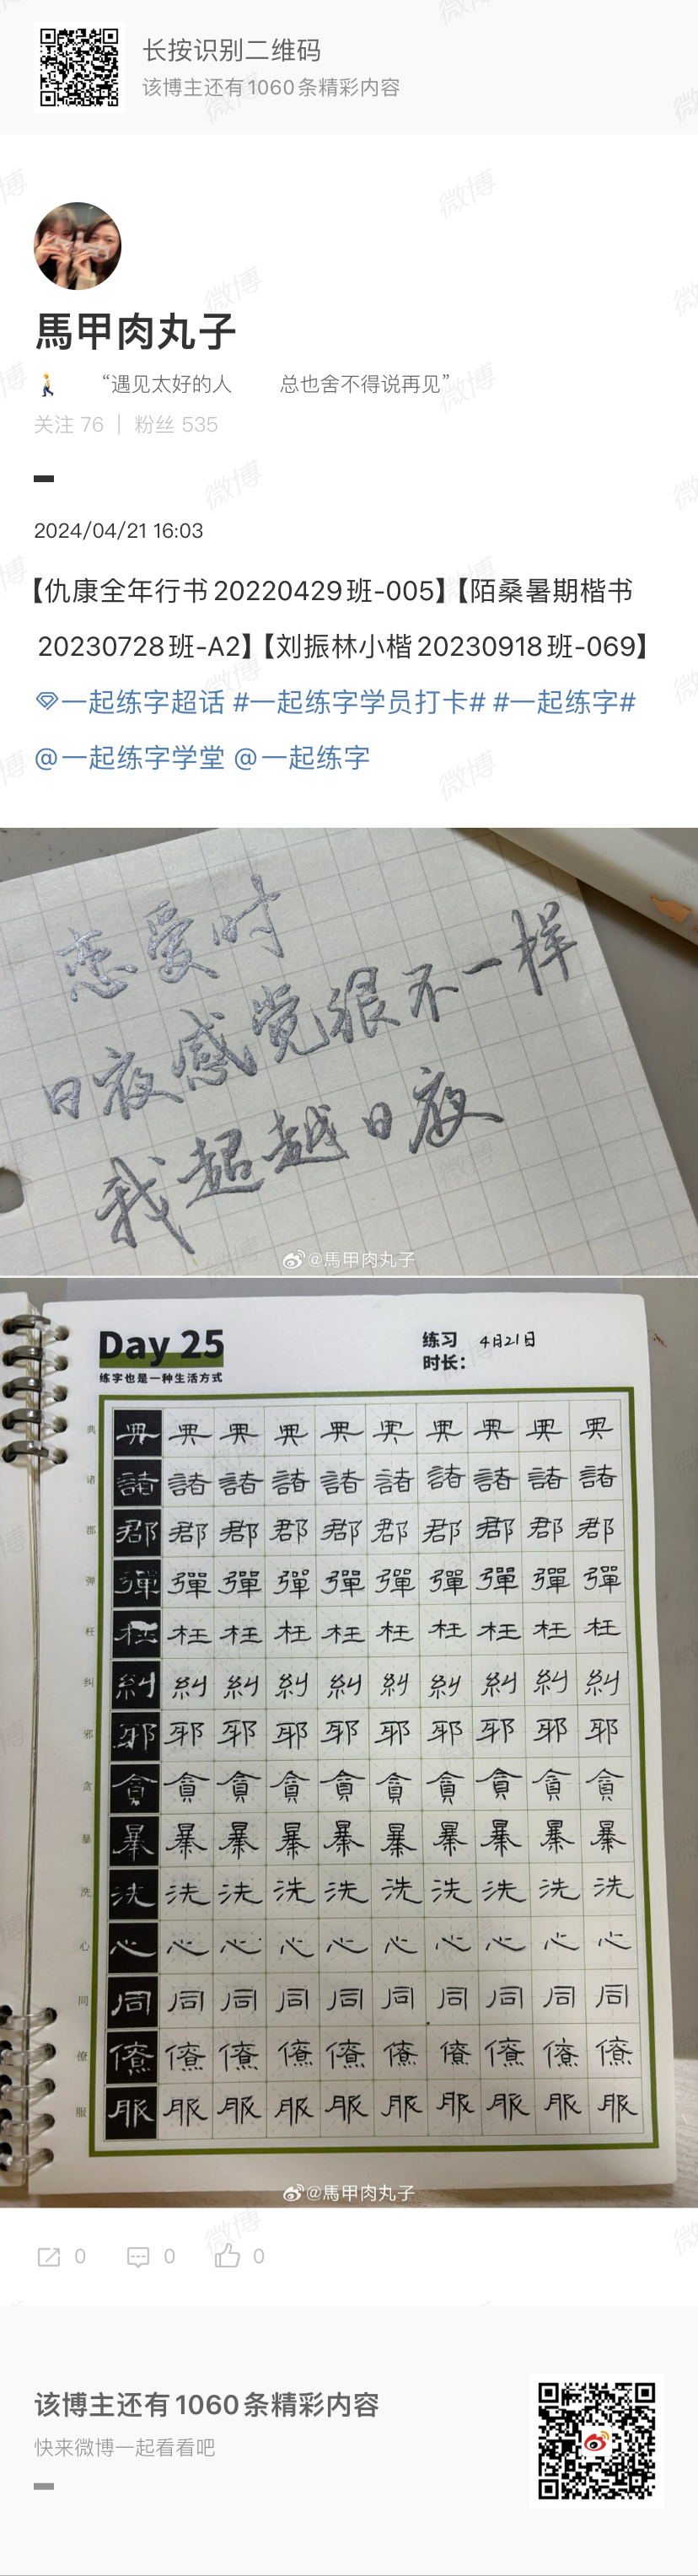 长按识别二维码
该博主还有1060条精彩内容
馬甲肉丸子
“遇见太好的人 总也舍不得说再见”
关注 76 | 粉丝 535
2024/04/21 16:03
【仇康全年行书20220429班-005】【陌桑暑期楷书
20230728班-A2】【刘振林小楷20230918班-069】
一起练字超话 #一起练字学员打卡# #一起练字#
@一起练字学堂 @一起练字
恋爱时
日夜感觉很不一样
我超越日夜
@馬甲肉丸子
Day 25
练字也是一种生活方式
练习 4月21日
时长:
典 典 典 典 典 典 典 典 典 典 典
诸 諸 諸 諸 諸 諸 諸 諸 諸 諸 諸
郡 郡 郡 郡 郡 郡 郡 郡 郡 郡 郡
弹 彈 彈 彈 彈 彈 彈 彈 彈 彈 彈
枉 枉 枉 枉 枉 枉 枉 枉 枉 枉 枉
纠 糾 糾 糾 糾 糾 糾 糾 糾 糾 糾
邪 邪 邪 邪 邪 邪 邪 邪 邪 邪 邪
贪 貪 貪 貪 貪 貪 貪 貪 貪 貪 貪
暴 暴 暴 暴 暴 暴 暴 暴 暴 暴 暴
洗 洗 洗 洗 洗 洗 洗 洗 洗 洗 洗
心 心 心 心 心 心 心 心 心 心 心
同 同 同 同 同 同 同 同 同 同 同
僚 僚 僚 僚 僚 僚 僚 僚 僚 僚 僚
服 服 服 服 服 服 服 服 服 服 服
@馬甲肉丸子
0 0 0
该博主还有1060条精彩内容
快来微博一起看看吧
微博